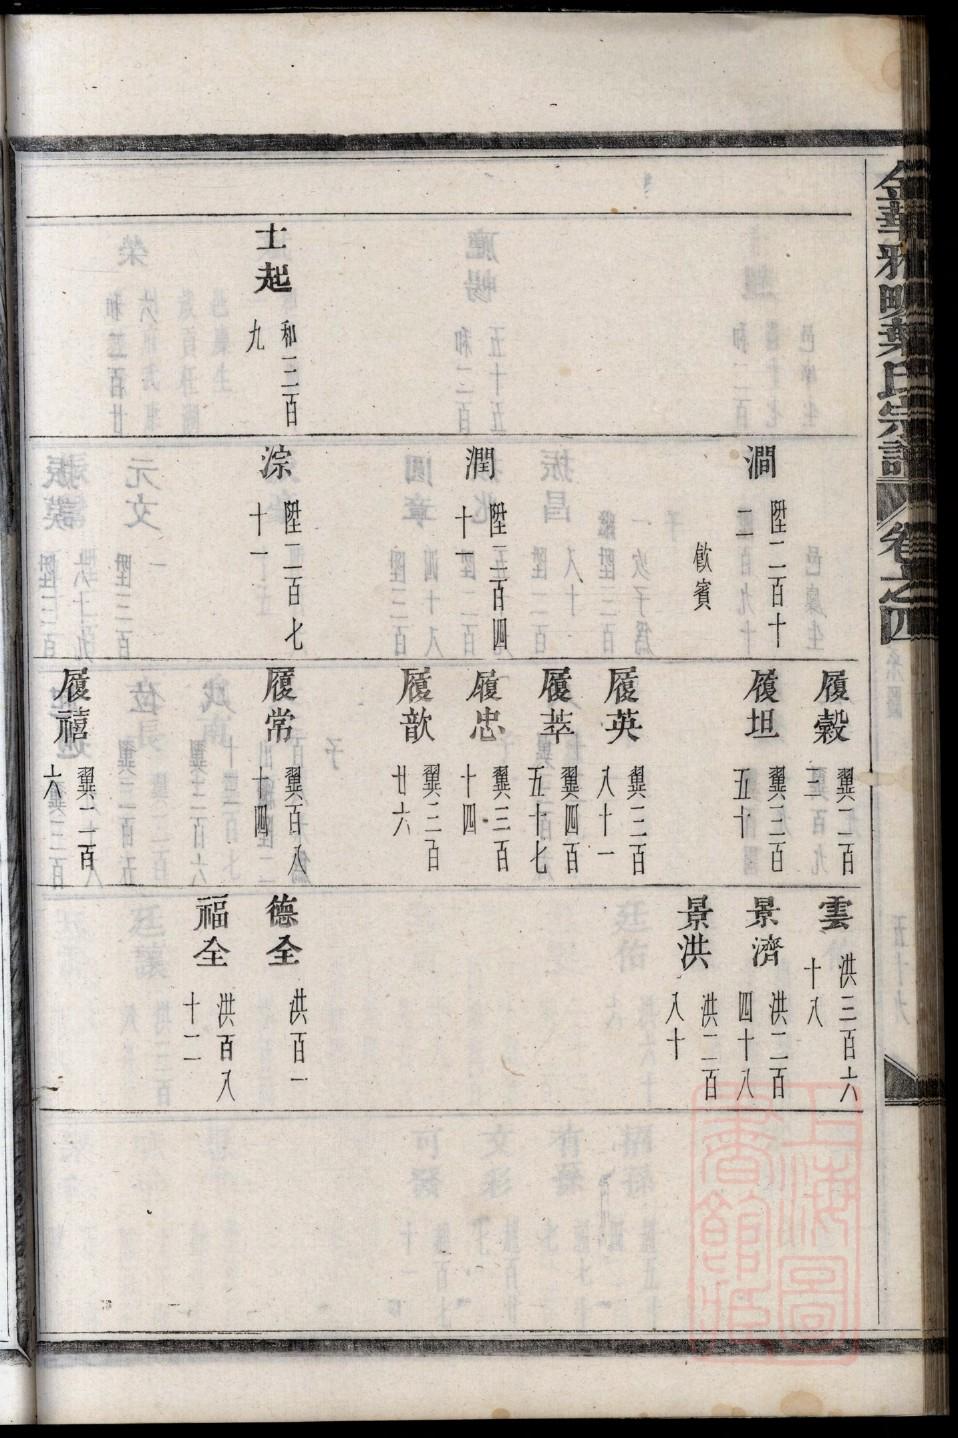 金華雅畈葉氏宗譜 卷之四
士起 和三百九
澗 陞二百十二 飲賓
潤 陞三百四十一
淙 陞二百七十一
履穀 翼二百三
履坦 翼三百五十
履英 翼三百八十一
履萃 翼四百五十七
履忠 翼三百十四
履歆 翼三百廿六
履常 翼百八十四
履禧 翼二百六
雲 洪三百六十八
景濟 洪二百四十八
景洪 洪二百八十
德全 洪百一
福全 洪百八十二
上海圖書館藏